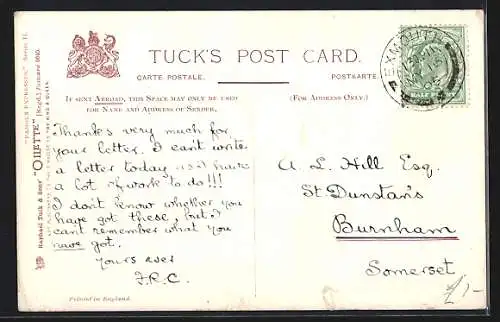 TUCK'S POST CARD.
CARTE POSTALE.
POSTKARTE.
IF SENT ABROAD, THIS SPACE MAY ONLY BE USED
FOR NAME AND ADDRESS OF SENDER.
(FOR ADDRESS ONLY.)
Thanks very much for
your letter. I can't write
a letter today as I have
a lot of work to do!!!
I don't know whether you
have got these, but I
cant remember what you
have got.
Yours ever
F.R.C.
A. L. Hill Esq.
St. Dunstan's
Burnham
Somerset
Printed in England.
Raphael Tuck & Sons' "OILETTE" [Regd.] Postcard
"FAMOUS EXPRESSES" Series II.
EXMOUTH